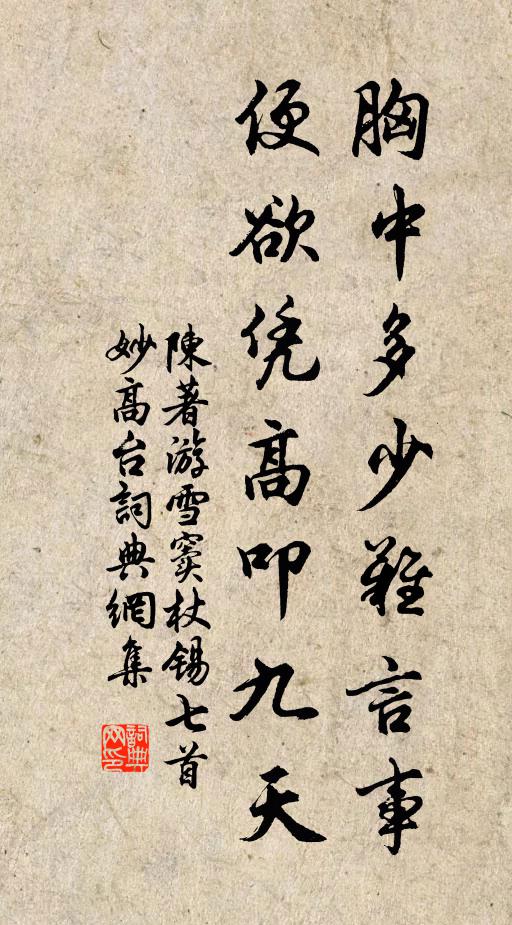 胸中多少難言事
便欲凭高叩九天
陳著游雪竇杖锡七首
妙高台詞典網集
詞典网印